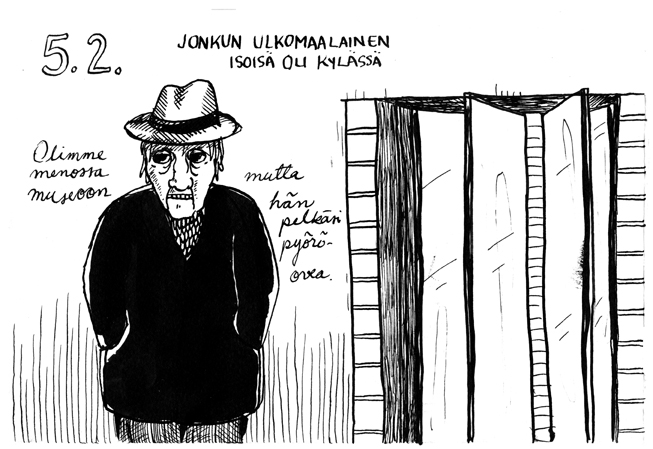 5.2.
JONKUN ULKOMAALAINEN
ISOISÄ OLI KYLÄSSÄ
Olimme
menossa
museoon
mutta
hän
pelkäsi
pyörö-
ovea.